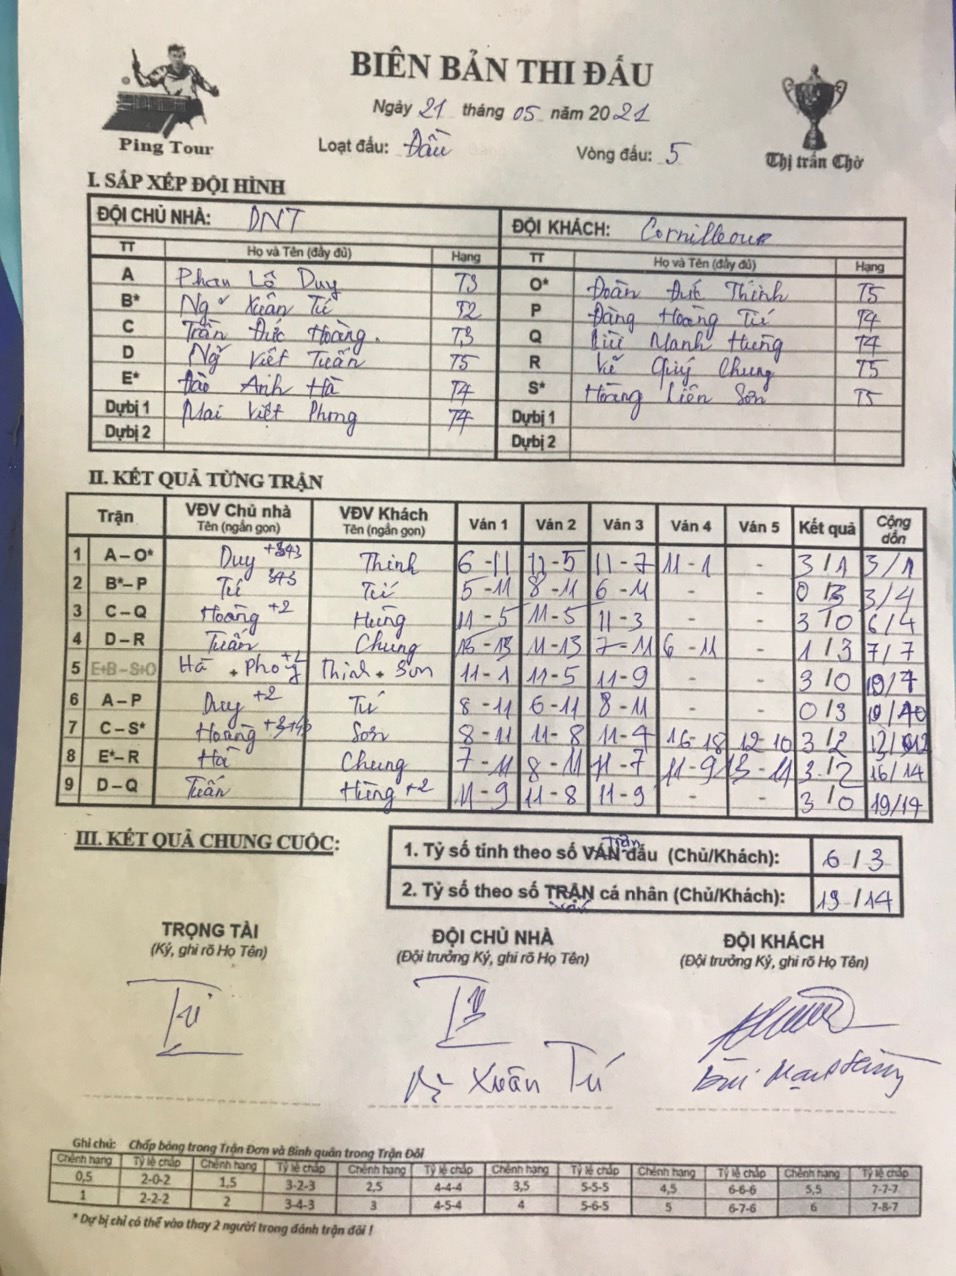 BIÊN BẢN THI ĐẤU
Ngày 21 tháng 05 năm 2021
Ping Tour
Loạt đấu: Đầu Vòng đấu: 5
Thị trấn Chờ
I. SẮP XẾP ĐỘI HÌNH
ĐỘI CHỦ NHÀ: DNT ĐỘI KHÁCH: Cornilleour
TT Họ và Tên (đầy đủ) Hạng TT Họ và Tên (đầy đủ) Hạng
A Phan Lộ Duy T3 O* Đoàn Đức Thinh T5
B* Ngỹ Xuân Tú T2 P Đăng Hoàng Tú T4
C Trần Đức Hoàng. T3 Q Bùi Mạnh Hưng T4
D Ngỹ Viết Tuấn T5 R Vũ Quý Chung T5
E* Đào Anh Hà T4 S* Hoàng Liên Sơn T5
Dự bị 1 Mai Việt Phong T4 Dự bị 1
Dự bị 2 Dự bị 2
II. KẾT QUẢ TỪNG TRẬN
Trận VĐV Chủ nhà Tên (ngắn gọn) VĐV Khách Tên (ngắn gọn) Ván 1 Ván 2 Ván 3 Ván 4 Ván 5 Kết quả Cộng dồn
1 A – O* Duy Thinh 6 - 11 12 - 5 11 - 7 11 - 1 - 3 / 1 3 / 1
2 B* – P Tú 343 Tú 5 - 11 8 - 11 6 - 11 - - 0 / 3 3 / 4
3 C – Q Hoàng +2 Hưng 11 - 5 11 - 5 11 - 3 - - 3 / 0 6 / 4
4 D – R Tuấn Chung 15 - 13 11 - 13 7 - 11 6 - 11 - 1 / 3 7 / 7
5 E+B – S+O Hà + Phog Thinh + Sơn 11 - 1 11 - 5 11 - 9 - - 3 / 0 10 / 7
6 A – P Duy +2 Tú 8 - 11 6 - 11 8 - 11 - - 0 / 3 10 / 10
7 C – S* Hoàng Sơn 8 - 11 11 - 8 11 - 4 16 - 18 12 - 10 3 / 2
8 E* – R Hà Chung 7 - 11 8 - 11 11 - 7 11 - 9 13 - 11 3 / 2 16 / 14
9 D – Q Tuấn Hưng +2 11 - 9 11 - 8 11 - 9 - - 3 / 0 19 / 14
III. KẾT QUẢ CHUNG CUỘC:
1. Tỷ số tính theo số VÁN trận đấu (Chủ/Khách): 6 / 3
2. Tỷ số theo số TRẬN cá nhân (Chủ/Khách): 19 / 14
ván
TRỌNG TÀI ĐỘI CHỦ NHÀ ĐỘI KHÁCH
(Ký, ghi rõ Họ Tên) (Đội trưởng Ký, ghi rõ Họ Tên) (Đội trưởng Ký, ghi rõ Họ Tên)
Xuân Tú Bùi Mạnh Hưng
Ghi chú: Chấp bóng trong Trận Đơn và Bình quân trong Trận Đôi
Chênh hạng Tỷ lệ chấp Chênh hạng Tỷ lệ chấp Chênh hạng Tỷ lệ chấp Chênh hạng Tỷ lệ chấp Chênh hạng Tỷ lệ chấp Chênh hạng Tỷ lệ chấp
0,5 2-0-2 1,5 3-2-3 2,5 4-4-4 3,5 5-5-5 4,5 6-6-6 5,5 7-7-7
1 2-2-2 2 3-4-3 3 4-5-4 4 5-6-5 5 6-7-6 6 7-8-7
* Dự bị chỉ có thể vào thay 2 người trong đánh trận đôi !